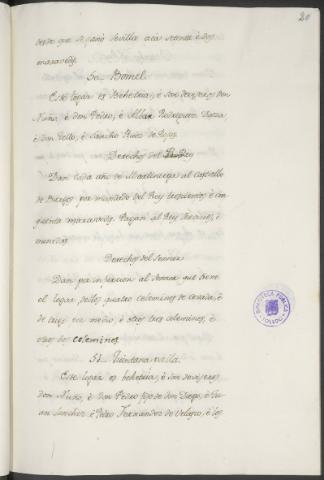 20
desde que se ganó Sevilla acá setenta è dos
maravedis.
50. Boniel.
Este logar es Behetria, è son devis eros don
Nuño, è don Pedro, è Albar Rodriguez Daza,
è don Tello, è Sancho Ruiz de Rojas.
Derechos del Rey
Dan cada año de Martiniega al castiello
de Burgos por mandado del Rey trescientos è cin
quenta maravedis. Pagan al Rey servicios, è
monedas.
Derechos del Sennor.
Dan por infurcion al Sennor que tiene
el logar, quatro celemines de cevada, è
de trigo un medio, è otros tres celemines, è
otros do celemines
51. Quintana nilla.
Este logar es behetria, è son deviseros
don Nuño, è don Pedro fijo de don Diego, è Ju
an Sanchez è Pedro Fernandez de Velasco, è los
BIBLIOTECA PUBLICA
TOLEDO